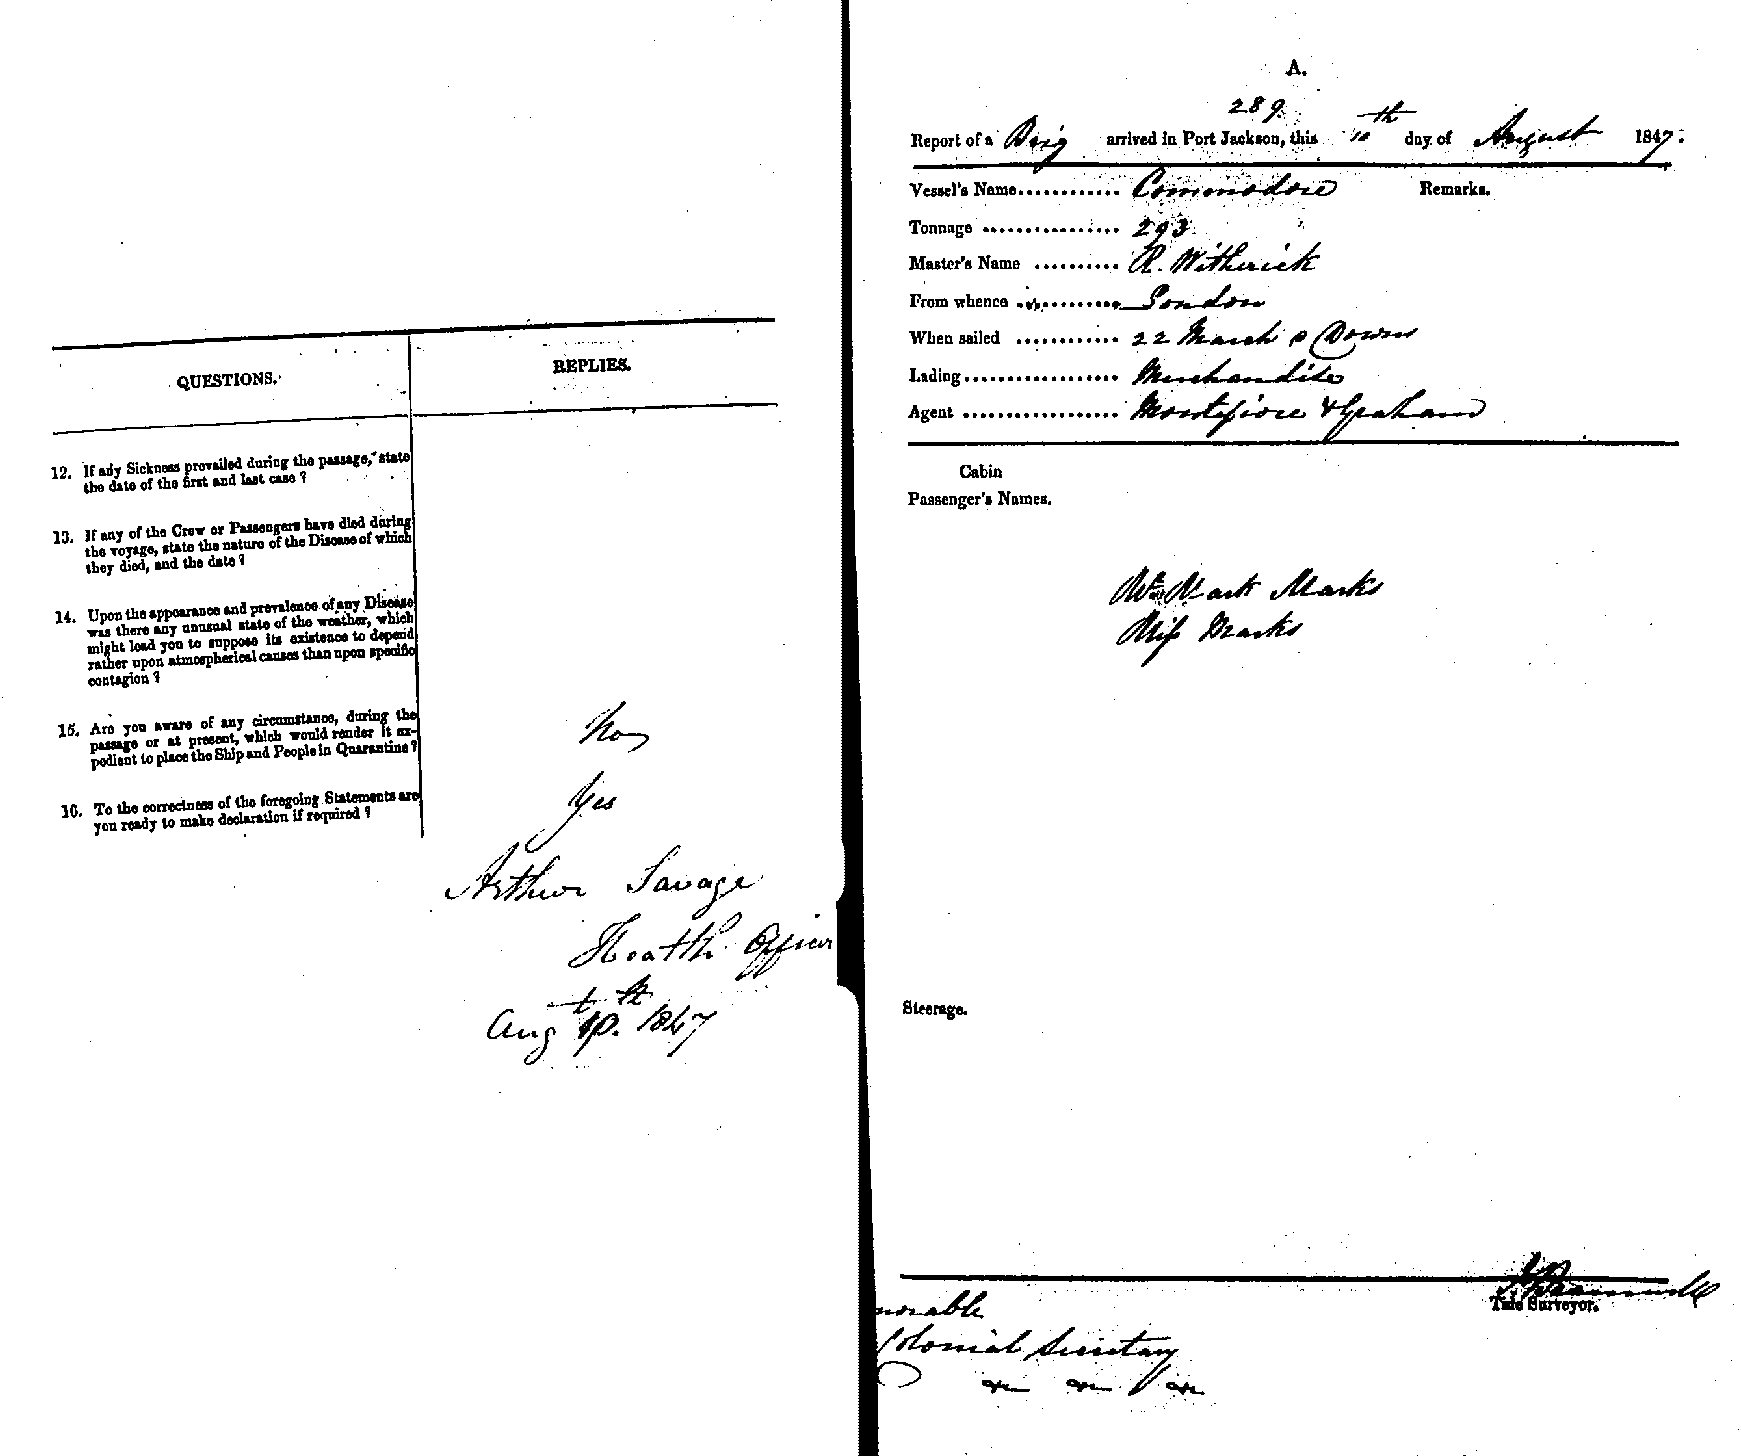 QUESTIONS.
REPLIES.
12. If any Sickness prevailed during the passage, state
the date of the first and last case ?
13. If any of the Crew or Passengers have died during
the voyage, state the nature of the Disease of which
they died, and the date ?
14. Upon the appearance and prevalence of any Disease
was there any unusual state of the weather, which
might lead you to suppose its existence to depend
rather upon atmospherical causes than upon specific
contagion ?
15. Are you aware of any circumstance, during the
passage or at present, which would render it ex-
pedient to place the Ship and People in Quarantine ?
No
16. To the correctness of the foregoing Statements are
you ready to make declaration if required ?
Yes
Arthur Savage
Health Officer
Aug 10th. 1847
A.
289.
Report of a Brig arrived in Port Jackson, this 10th day of August 1847.
Vessel's Name............ Commodore Remarks.
Tonnage ................ 293
Master's Name .......... R. Witherick
From whence ............ London
When sailed ............ 22 March Downs
Lading.................. Merchandise
Agent .................. Montefiore & Graham
Cabin
Passenger's Names.
Mark Marks
Miss Marks
Steerage.
Tide Surveyor.
norable
Colonial Secretary
&c &c &c